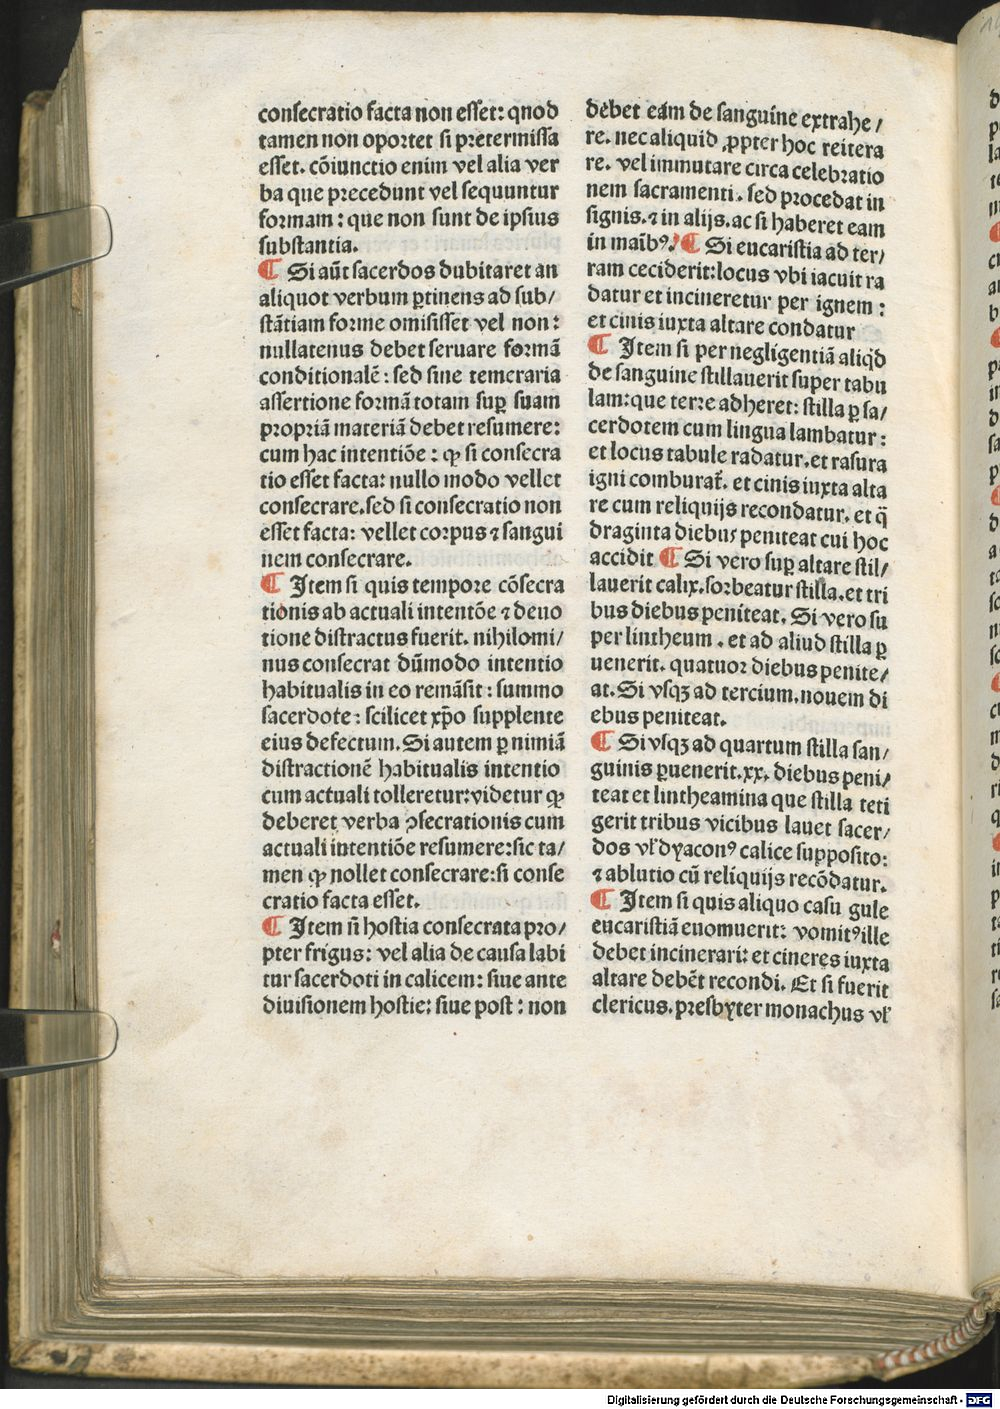 conſecratio facta non eſſet: qnod
tamen non oportet ſi pretermiſſa
eſſet. cōiunctio enim vel alia ver
ba que precedunt vel ſequuntur
formam: que non ſunt de ipſius
ſubſtantia.
¶ Si aūt ſacerdos dubitaret an
aliquot verbum ꝑtinens ad ſub/
ſtātiam forme omiſiſſet vel non:
nullatenus debet ſeruare formā
conditionalē: ſed ſine temeraria
aſſertione formā totam ſuꝑ ſuam
propriā materiā debet reſumere:
cum hac intentiōe: ꝙ ſi conſecra
tio eſſet facta: nullo modo vellet
conſecrare. ſed ſi conſecratio non
eſſet facta: vellet corpus ⁊ ſangui
nem conſecrare.
¶ Item ſi quis tempore cōſecra
tionis ab actuali intentōe ⁊ deuo
tione diſtractus fuerit. nihilomi/
nus conſecrat dūmodo intentio
habitualis in eo remāſit: ſummo
ſacerdote: ſcilicet xp̄o ſupplente
eius defectum. Si autem ꝑ nimiā
diſtractionē habitualis intentio
cum actuali tolleretur: videtur ꝙ
deberet verba ↄſecrationis cum
actuali intentiōe reſumere: ſic ta/
men ꝙ nollet conſecrare: ſi conſe
cratio facta eſſet.
¶ Item ſi hoſtia conſecrata pro/
pter frigus: vel alia de cauſa labi
tur ſacerdoti in calicem: ſiue ante
diuiſionem hoſtie: ſiue poſt: non
debet eam de ſanguine extrahe/
re. nec aliquid ꝓpter hoc reitera
re. vel immutare circa celebratio
nem ſacramenti. ſed procedat in
ſignis. ⁊ in alijs. ac ſi haberet eam
in maīb⁹. ¶ Si eucariſtia ad ter/
ram ceciderit: locus vbi iacuit ra
datur et incineretur per ignem:
et cinis iuxta altare condatur
¶ Item ſi per negligentiā aliqd
de ſanguine ſtillauerit ſuper tabu
lam: que terre adheret: ſtilla ꝑ ſa/
cerdotem cum lingua lambatur:
et locus tabule radatur. et raſura
igni comburat̄. et cinis iuxta alta
re cum reliquijs recondatur. et q̄
draginta diebus peniteat cui hoc
accidit ¶ Si vero ſuꝑ altare ſtil/
lauerit calix. ſorbeatur ſtilla. et tri
bus diebus peniteat. Si vero ſu
per lintheum. et ad aliud ſtilla ꝑ
uenerit. quatuor diebus penite/
at. Si vſqꝫ ad tercium. nouem di
ebus peniteat.
¶ Si vſqꝫ ad quartum ſtilla ſan/
guinis ꝑuenerit. xx. diebus peni/
teat et lintheamina que ſtilla teti
gerit tribus vicibus lauet ſacer/
dos vl̓ dyacon⁹ calice ſuppoſito:
⁊ ablutio cū reliquijs recōdatur.
¶ Item ſi quis aliquo caſu gule
eucariſtiā euomuerit: vomit⁹ ille
debet incinerari: et cineres iuxta
altare debēt recondi. Et ſi fuerit
clericus. presbyter monachus vl̓
Digitalisierung gefördert durch die Deutsche Forschungsgemeinschaft - DFG